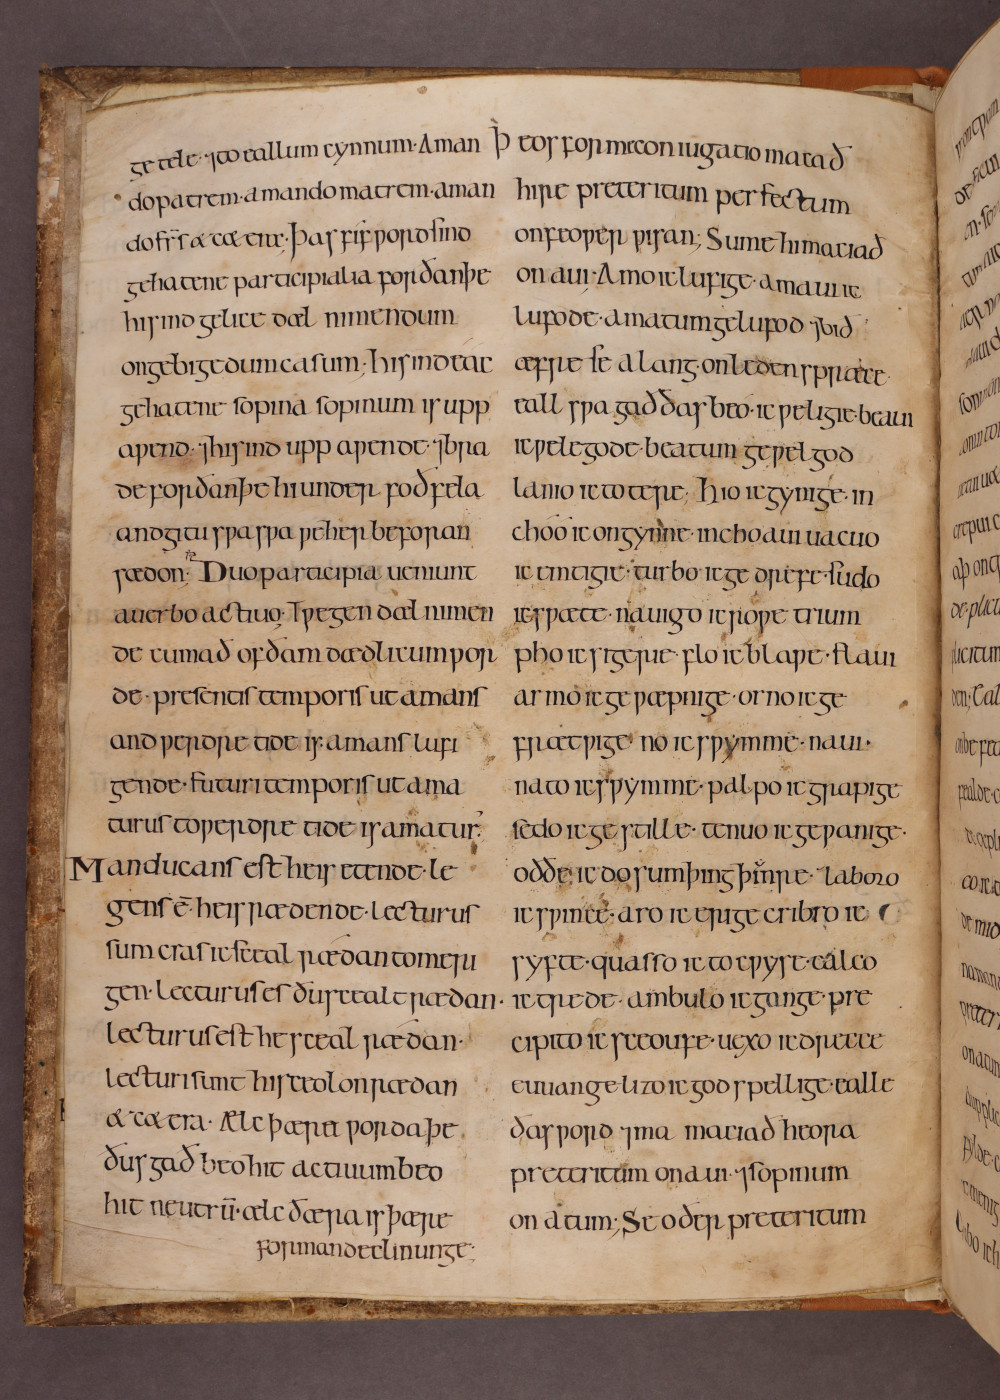 getele · ⁊ to eallum cynnum · Aman
do patrem · amando matrem · aman
do fr̄s & cætere · þas fif ƿord sind
gehatene participialia forðanþe
hi sind gelice dæl nimendum
on gebigedum casum; hi sind eac
gehatene sopina sopinum is upp
aƿend · ⁊ hi sind upp aƿende · ⁊ bra
de forðanþe hi under foð fela
andgitu sƿa sƿa ƿe her beforan
sædon · Duo participia ueniunt
a uerbo actiuo · Tƿegen dæl nimen
de cumað of ðam dædlicum ƿor
de · presentis temporis ut amans
andƿerdre tide is · amans lufi
gende · futuri temporis ut ama
turus toƿerdre tide is amaturus
Manducans est he is etende · le
gens ē · he is rædende · lecturus
sum cras ic sceal rædan to meri
gen · lecturus es ðu scealt rædan ·
lecturus est he sceal rædan ·
lecturi sunt hi sceolon rædan
& cætera · Ælc þæra ƿorda þe
ðus gað beo hit actiuum beo
hit neutrū · ælc ðæra is þære
forman declinunge ·
Þeos forme coniugatio macað
hire preteritum perfectum
on feoƿer ƿisan; Sume hi maciað
on aui · Amo ic lufige · amaui ic
lufode · amatum gelufod ⁊ bið
æfre se a lang on leden spræce
eall sƿa gað ðas beo · ic ƿelgie · beaui
ic ƿelegode · beatum geƿelgod
lanio ic totere; Hio ic gynige · in
choo ic ongynne · inchoaui uacuo
ic emtigie · turbo ic gedrefe · sudo
ic sƿæte · nauigo ic roƿe trium
pho ic sigerie · flo ic blaƿe · flaui
armo ic geƿæpnige · orno ic ge
frætƿige no ic sƿymme · naui ·
nato ic sƿymme · palpo ic grapige
sedo ic gestille · tenuo ic geƿanige ·
oððe ic do sum þing þinre · Laboro
ic sƿince · aro ic erige cribro ic
syfte · quasso ic tocƿyse · calco
ic trede · ambulo ic gange · pre
cipito ic sceoufe · uexo ic drecce
euuangelizo ic godspellige · ealle
ðas ƿord ⁊ ma maciað heora
preteritum on aui · ⁊ sopinum
on atum; Se oðer preteritum